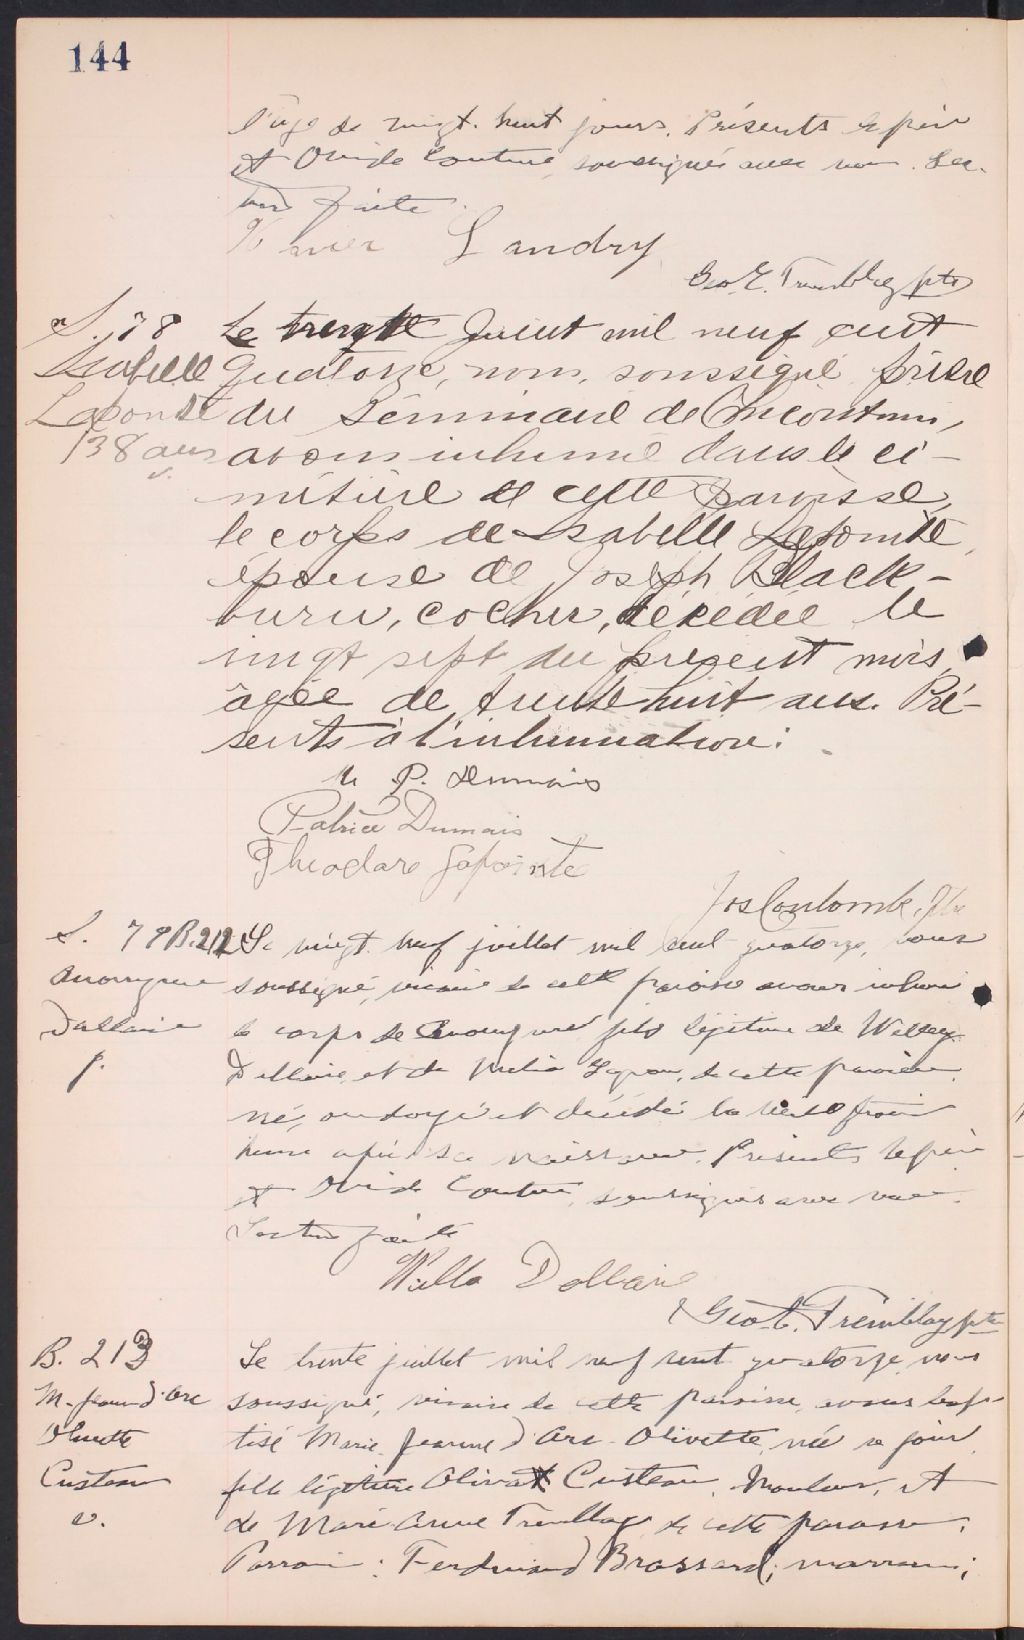 144
l'âge de vingt-huit jours. Présents le père
et Ovide Couture, soussignés avec nous. Lec-
ture faite.
Xavier Landry
Geo. E. Tremblay ptre
S. 78
Isabelle
Lapointe
38 ans
Le trente Juillet mil neuf cent
quatorze, nous, soussigné, prêtre
du Séminaire de Chicoutimi,
avons inhumé dans le ci-
metière de cette paroisse,
le corps de Isabelle Lapointe,
épouse de Joseph Black-
burn, cocher, décédée le
vingt sept du présent mois,
âgée de trente huit ans. Pré-
sents à l'inhumation:
P. Dumais
Patrice Dumais
Theodore Lapointe
Jos Coulombe, Ptre
S. 79 B. 212
Anonyme
Dallaire
f.
Le vingt-neuf juillet mil cent quatorze, nous
soussigné, vicaire de cette paroisse avons inhumé
le corps de Anonyme fils légitime de Willey
Dallaire, et de de cette paroisse,
né, ondoyé et décédé
heure après sa naissance. Présents le père
et Ovide Couture, soussignés avec nous.
Lecture faite
Willa Dallaire
Geo. E. Tremblay ptre
B. 213
M. Jeanne d'Arc
Olivette
Custeau
Le trente juillet mil neuf cent quatorze, nous
soussigné, vicaire de cette paroisse, avons bap-
tisé Marie Jeanne d'Arc Olivette, née ce jour,
fille légitime Oliva Custeau, mouleur, et
de Marie-Anne Tremblay, de cette paroisse.
Parrain: Ferdinand Brassard; marraine;